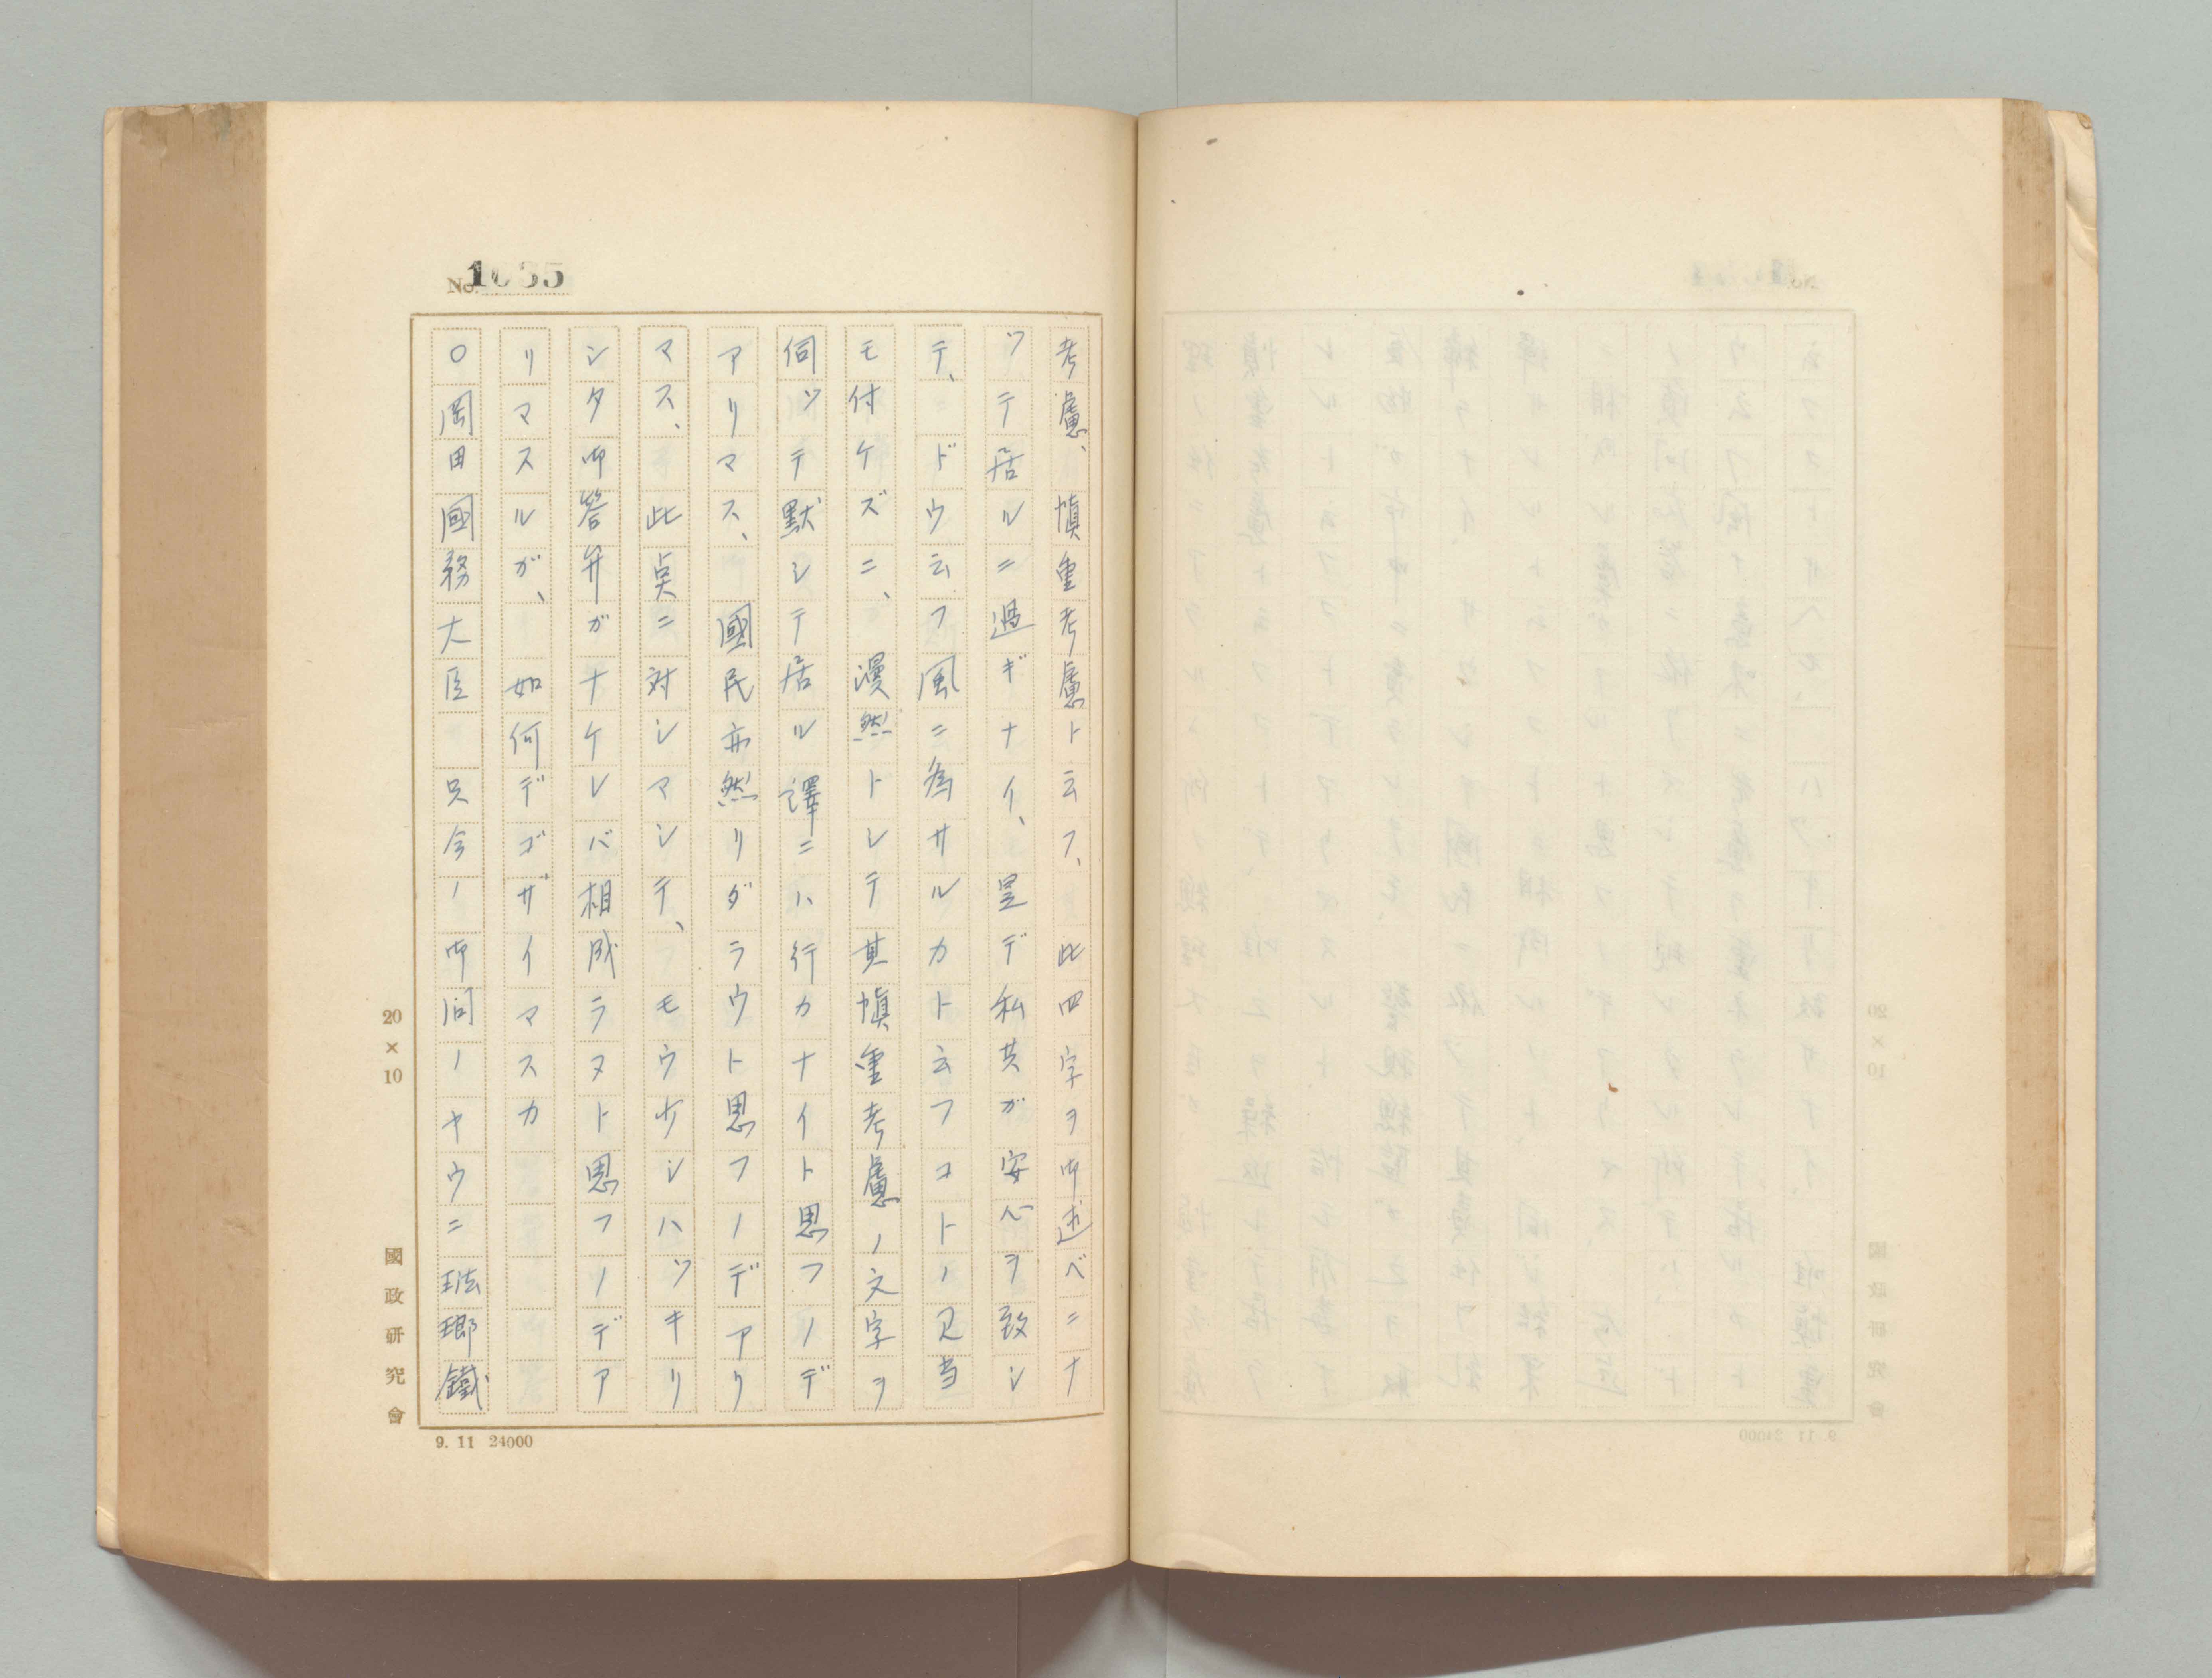 No. 1035
考慮、慎重考慮ト云フ、此四字ヲ御述ベニナ
ツテ居ルニ過ギナイ、是デ私共ガ安心ヲ致シ
テ、ドウ云フ風ニ為サルカト云フコトノ見当
モ付ケズニ、漫然トシテ其慎重考慮ノ文字ヲ
伺ツテ黙シテ居ル譯ニハ行カナイト思フノデ
アリマス、國民亦然リダラウト思フノデアリ
マス、此点ニ対シマシテ、モウ少シハツキリ
シタ御答弁ガナケレバ相成ラヌト思フノデア
リマスルガ、如何デゴザイマスカ
〇岡田國務大臣 只今ノ御問ノヤウニ琺瑯鐵
20×10
國政研究會
9. 11 24000